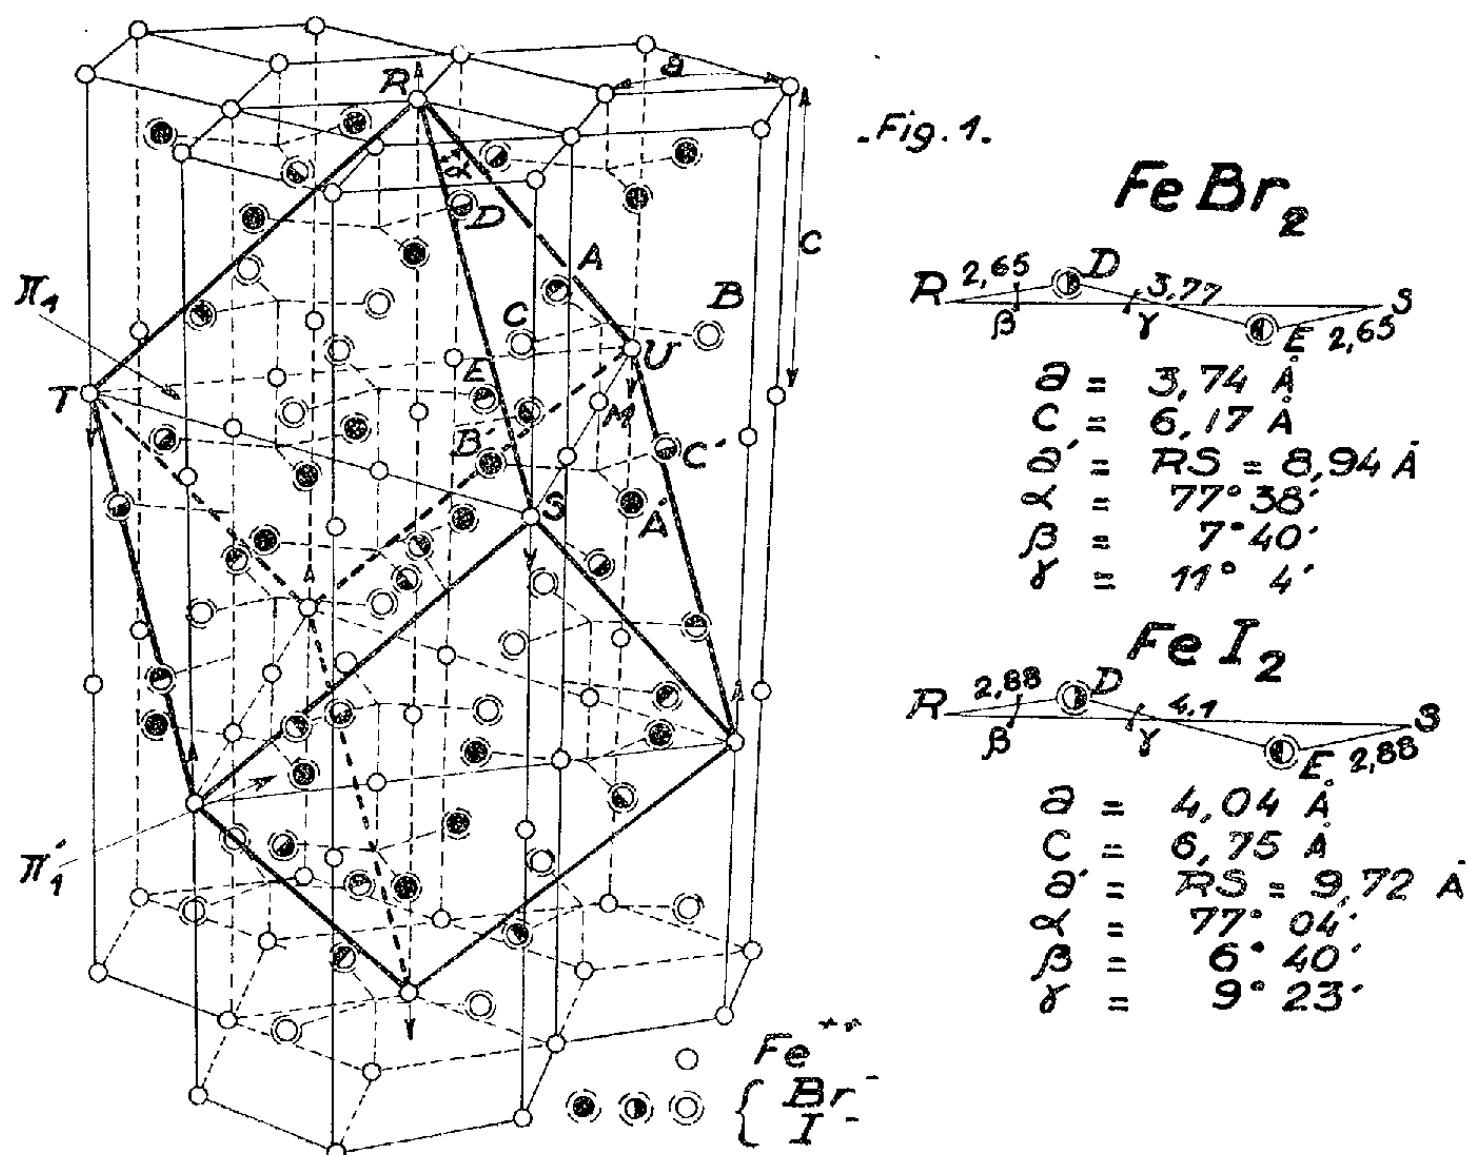 .Fig.1.
R
a
α
D
A
C
B
C
π₁
T
E
U
M
B'
C'
S
A'
π'₁
Fe⁺⁺
Br⁻
I⁻
FeBr₂
R 2,65 D 3,77 S
β γ E 2,65
a = 3,74 Å
C = 6,17 Å
a' = RS = 8,94 Å
α = 77° 38'
β = 7° 40'
γ = 11° 4'
FeI₂
R 2,88 D 4,1 S
β γ E 2,88
a = 4,04 Å
C = 6,75 Å
a' = RS = 9,72 Å
α = 77° 04'
β = 6° 40'
γ = 9° 23'